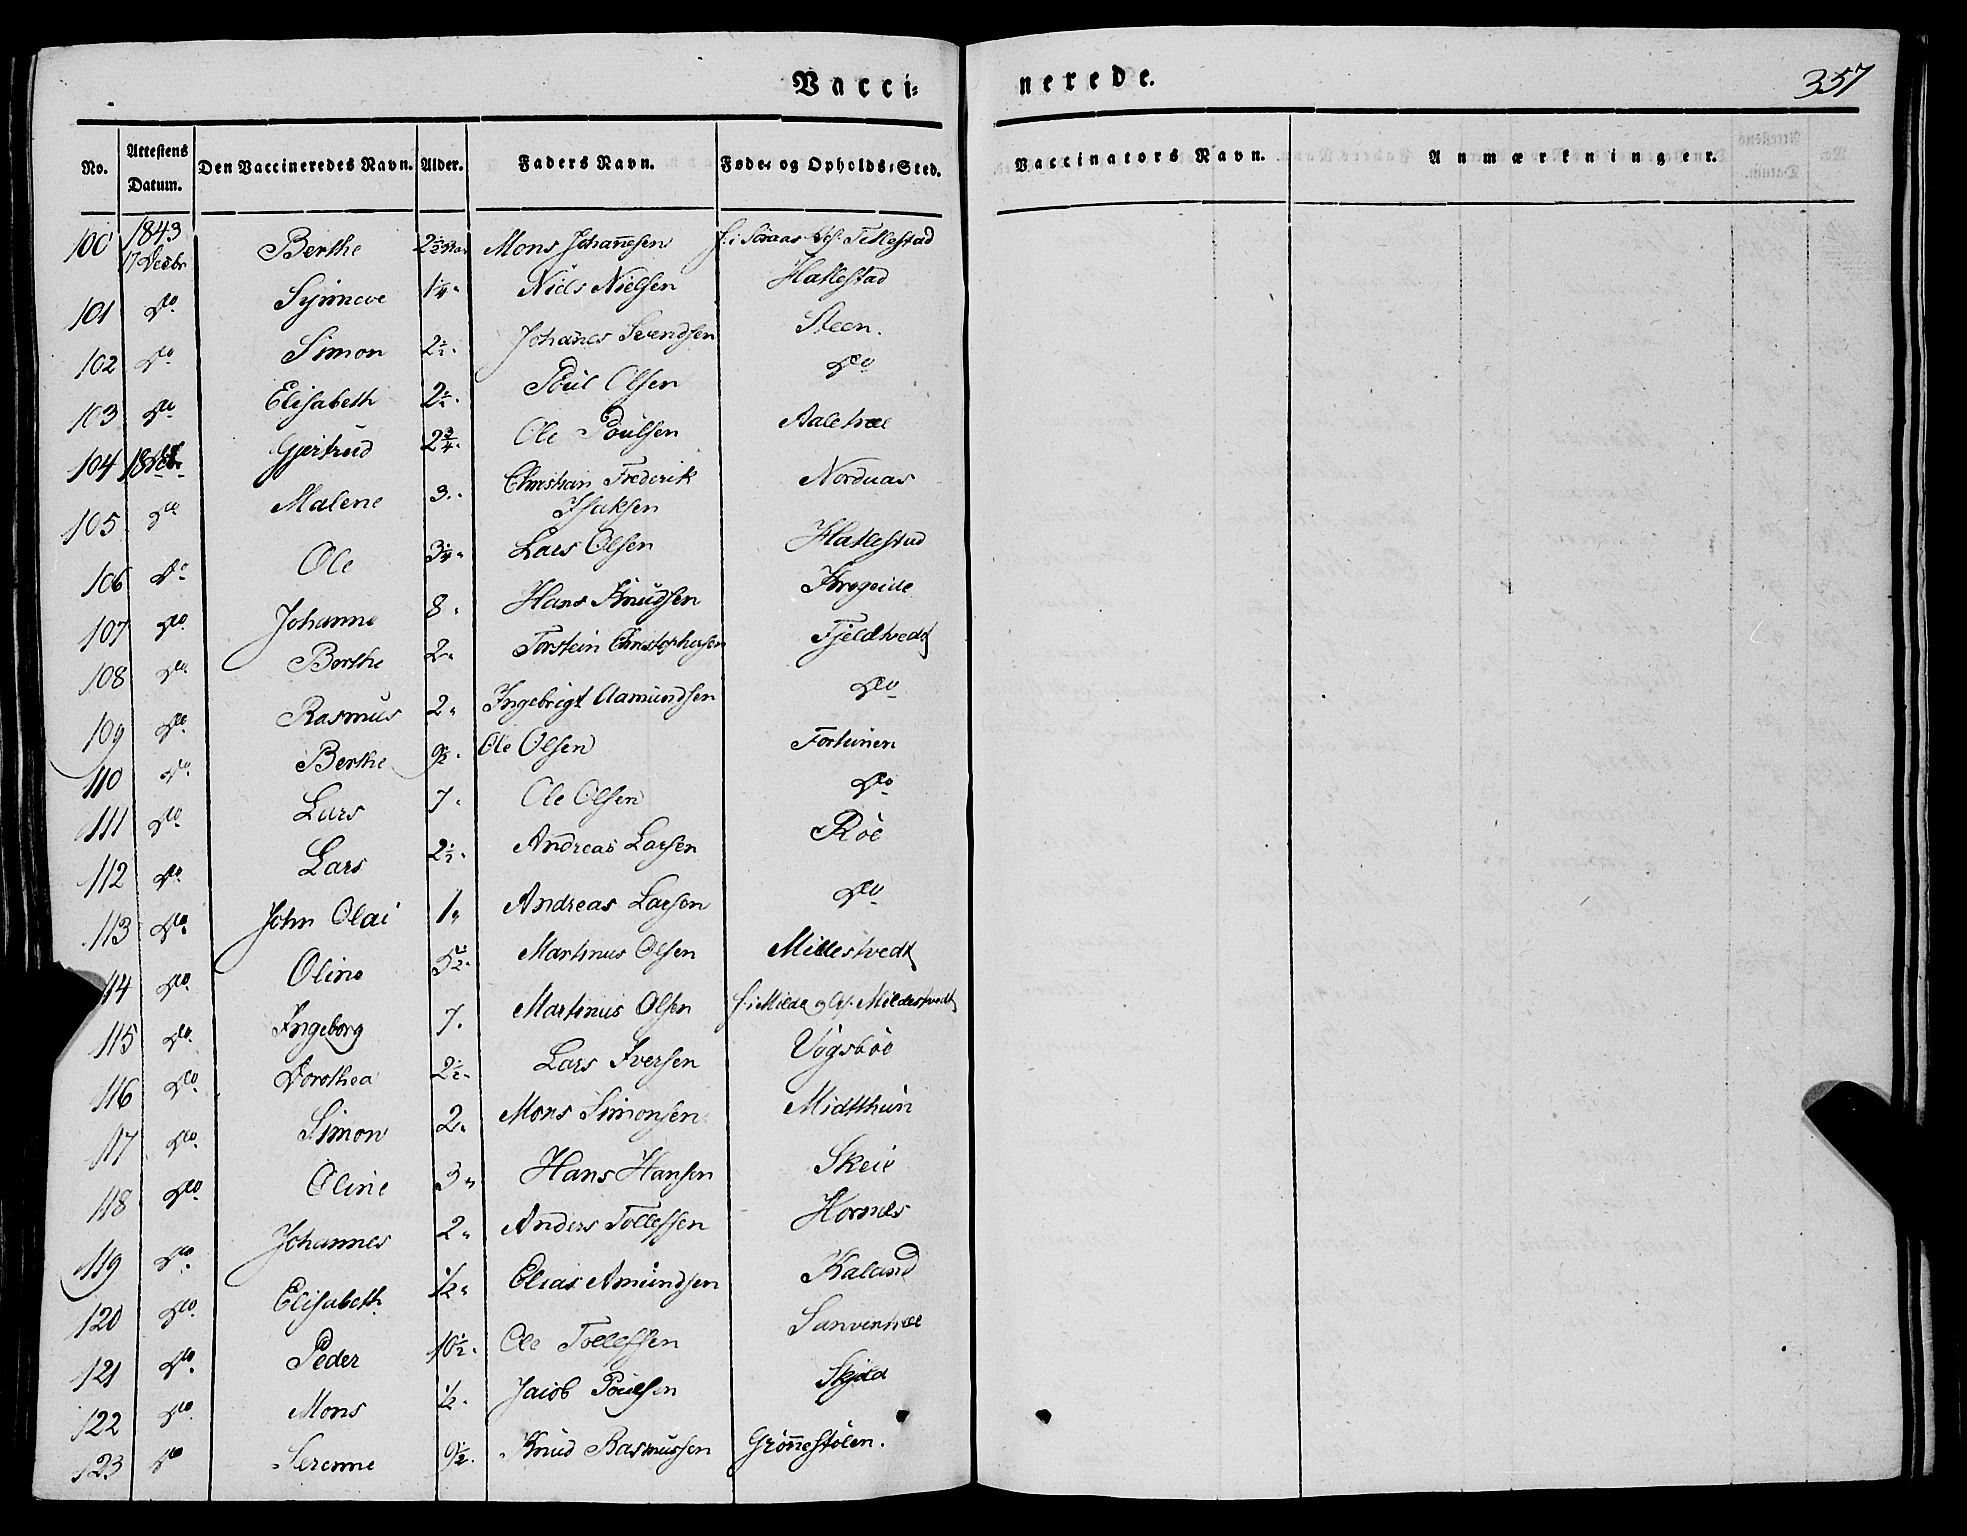 Vacci= nerede. 357
No. Attestens Datum. Den Vaccineredes Navn. Alder. Faders Navn. Føde- og Opholds-Sted. Vaccinators Navn. Anmærkninger.
100 1843 17 Decbr Berthe 2½ Mons Johannesen f. i Tellestad
101 Do Synneve 1¼ Niels Nielsen Hatlestad
102 Do Simon 2½ Johanes Svendsen Steen.
103 Do Elisabeth 2½ Poul Olsen Do
104 18 Gjertrud 2¾ Ole Poulsen
105 Do Malene 3 Christian Frederik Isaksen Nordaas
106 Do Ole 3¼ Lars Olsen Hatlestad
107 Do Johanne 8 Hans Knudsen Krogeide
108 Do Berthe 2 Torstein Christophersen Fjeldtvedt
109 Do Rasmus 2 Ingebrigt Aamundsen Do
110 Do Berthe Ole Olsen Fortunen
111 Do Lars 7 Ole Olsen Do
112 Do Lars 2½ Andreas Larsen Röe
113 Do John Olai 1 Andreas Larsen Do
114 Do Oline 5½ Martinus Olsen Mildestvedt
115 Do Ingeborg 7 Martinus Olsen f. i Milde og Op. Mildestvedt
116 Do Dorothea 2½ Lars Iversen Vögsböe
117 Do Simon 2 Mons Simonsen Midtthun
118 Do Oline 3 Hans Hansen Skeie
119 Do Johannes 2 Anders Tollefsen Hornæs
120 Do Elisabeth ½ Elias Amundsen Kaland
121 Do Peder 10½ Ole Tollefsen Sanventræ
122 Do Mons ½ Jacob Poulsen Skjold
123 Do Serenne 9½ Knud Rasmussen Grönnestölen.